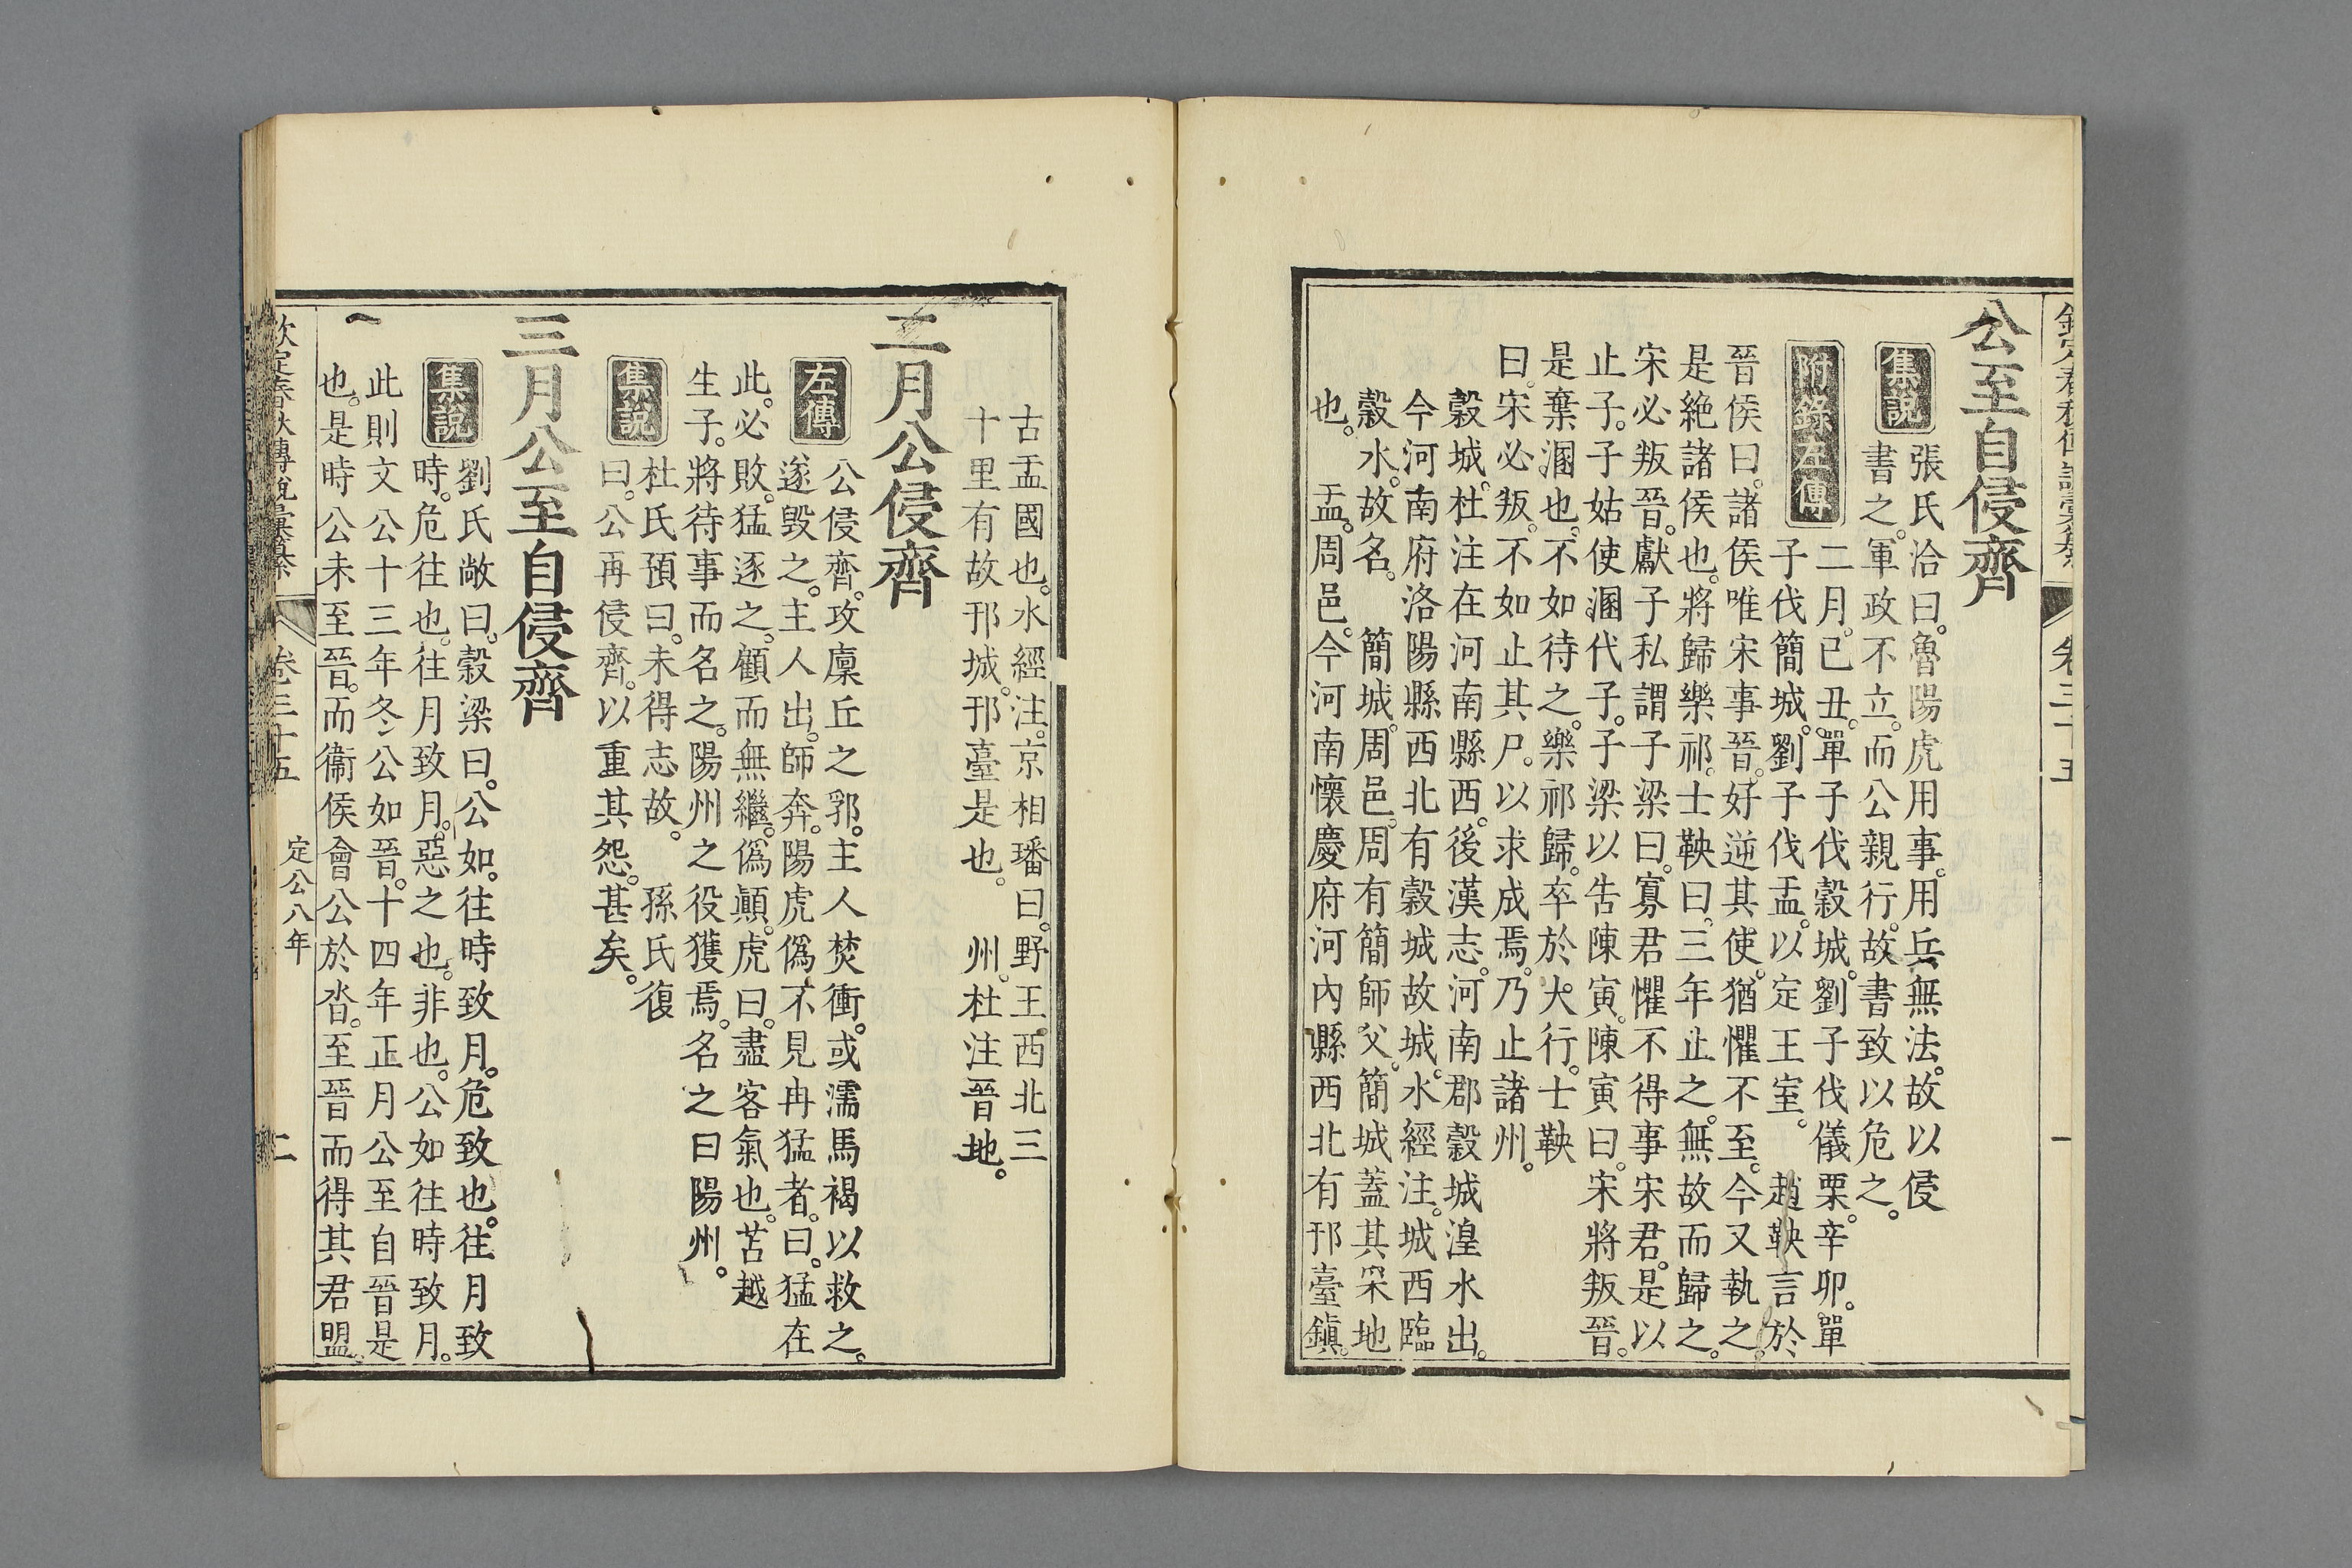 公至自侵齊
集說
張氏洽曰。魯陽虎用事。用兵無法。故以侵
書之。軍政不立。而公親行。故書致以危之。
附錄左傳
二月。己丑。單子伐穀城。劉子伐儀栗。辛卯。單
子伐簡城。劉子伐盂。以定王室。 趙鞅言於
晉侯曰。諸侯唯宋事晉。好逆其使。猶懼不至。今又執之。
是絶諸侯也。將歸樂祁。士鞅曰。三年止之。無故而歸之。
宋必叛晉。獻子私謂子梁曰。寡君懼不得事宋君。是以
止子。子姑使溷代子。子梁以告陳寅。陳寅曰。宋將叛晉。
是棄溷也。不如待之。樂祁歸。卒於大行。士鞅
曰。宋必叛。不如止其尸。以求成焉。乃止諸州。
穀城。杜注在河南縣西。後漢志。河南郡穀城湟水出。
今河南府洛陽縣西北有穀城故城。水經注。城西臨
穀水。故名。 簡城。周邑。周有簡師父。簡城蓋其采地
也。 盂。周邑。今河南懷慶府河內縣西北有邘臺鎮。
古盂國也。水經注。京相璠曰。野王西北三
十里有故邘城。邘臺是也。 州。杜注晉地。
二月公侵齊
左傳
公侵齊。攻廩丘之郛。主人焚衝。或濡馬褐以救之。
遂毀之。主人出。師奔。陽虎僞不見冉猛者。曰。猛在
此。必敗。猛逐之。顧而無繼。僞顚。虎曰。盡客氣也。苫越
生子。將待事而名之。陽州之役獲焉。名之曰陽州。
集說
杜氏預曰。未得志故。 孫氏復
曰。公再侵齊。以重其怨。甚矣。
三月公至自侵齊
集說
劉氏敞曰。穀梁曰。公如。往時致月。危致也。往月致
時。危往也。往月致月。惡之也。非也。公如往時致月。
此則文公十三年冬公如晉。十四年正月公至自晉是
也。是時公未至晉。而衞侯會公於沓。至晉而得其君盟。
欽定春秋傳說彙纂 卷三十五 定公八年 二